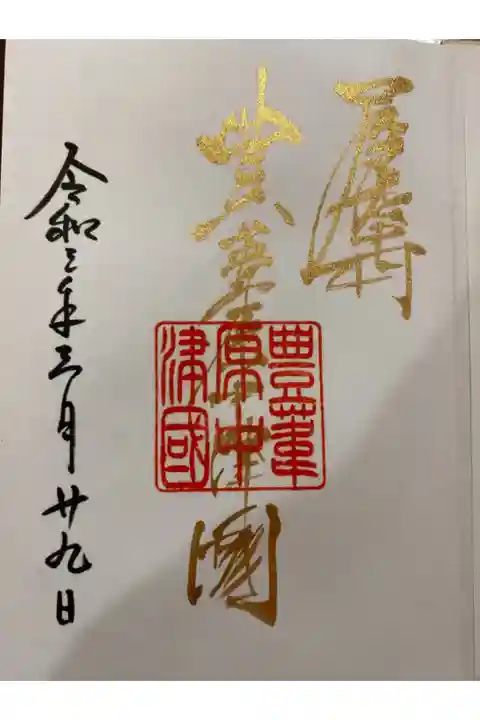 豊葦原中津國
豊葦
原中
津國
令和三年三月廿九日